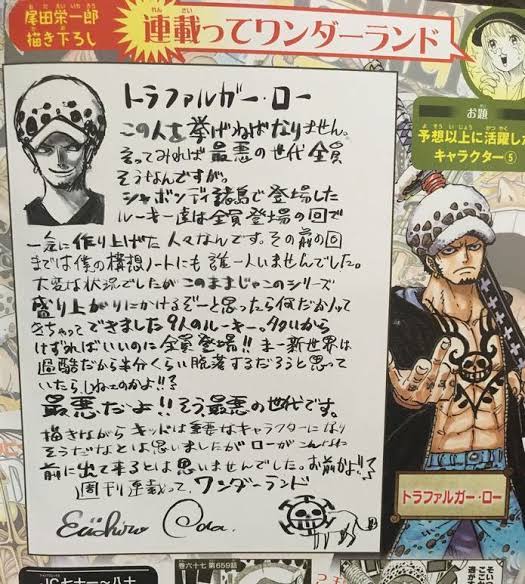 尾田栄一郎
描き下ろし
連載ってワンダーランド
お題
予想以上に活躍した
キャラクター⑤
トラファルガー・ロー
この人を挙げねばなりません。
言ってみれば最悪の世代全員
そうなんですが。
シャボンディ諸島で登場した
ルーキー達は全員登場の回で
一気に作り上げた人々なんです。その前の回
までは僕の構想ノートにも誰一人いませんでした。
大変な状況でしたがこのままじゃこのシリーズ
盛り上がりにかけるぞーと思ったら何だかんで
きちゃってできました9人のルーキー。多いから
けずればいいのに全員登場!!まー新世界は
過酷だから半分くらい脱落するだろうと思って
いたら死ねェのかよ!!?
最悪だよ!!そう最悪の世代です。
描きながらキッドは重要なキャラクターになり
そうだなとは思いましたがローがこんなに
前に出て来るとは思いませんでした。お前かよ!!?
週刊連載って、ワンダーランド
Eiichiro Oda.
トラファルガー・ロー
巻六十七 第659話
JC七十一~八十